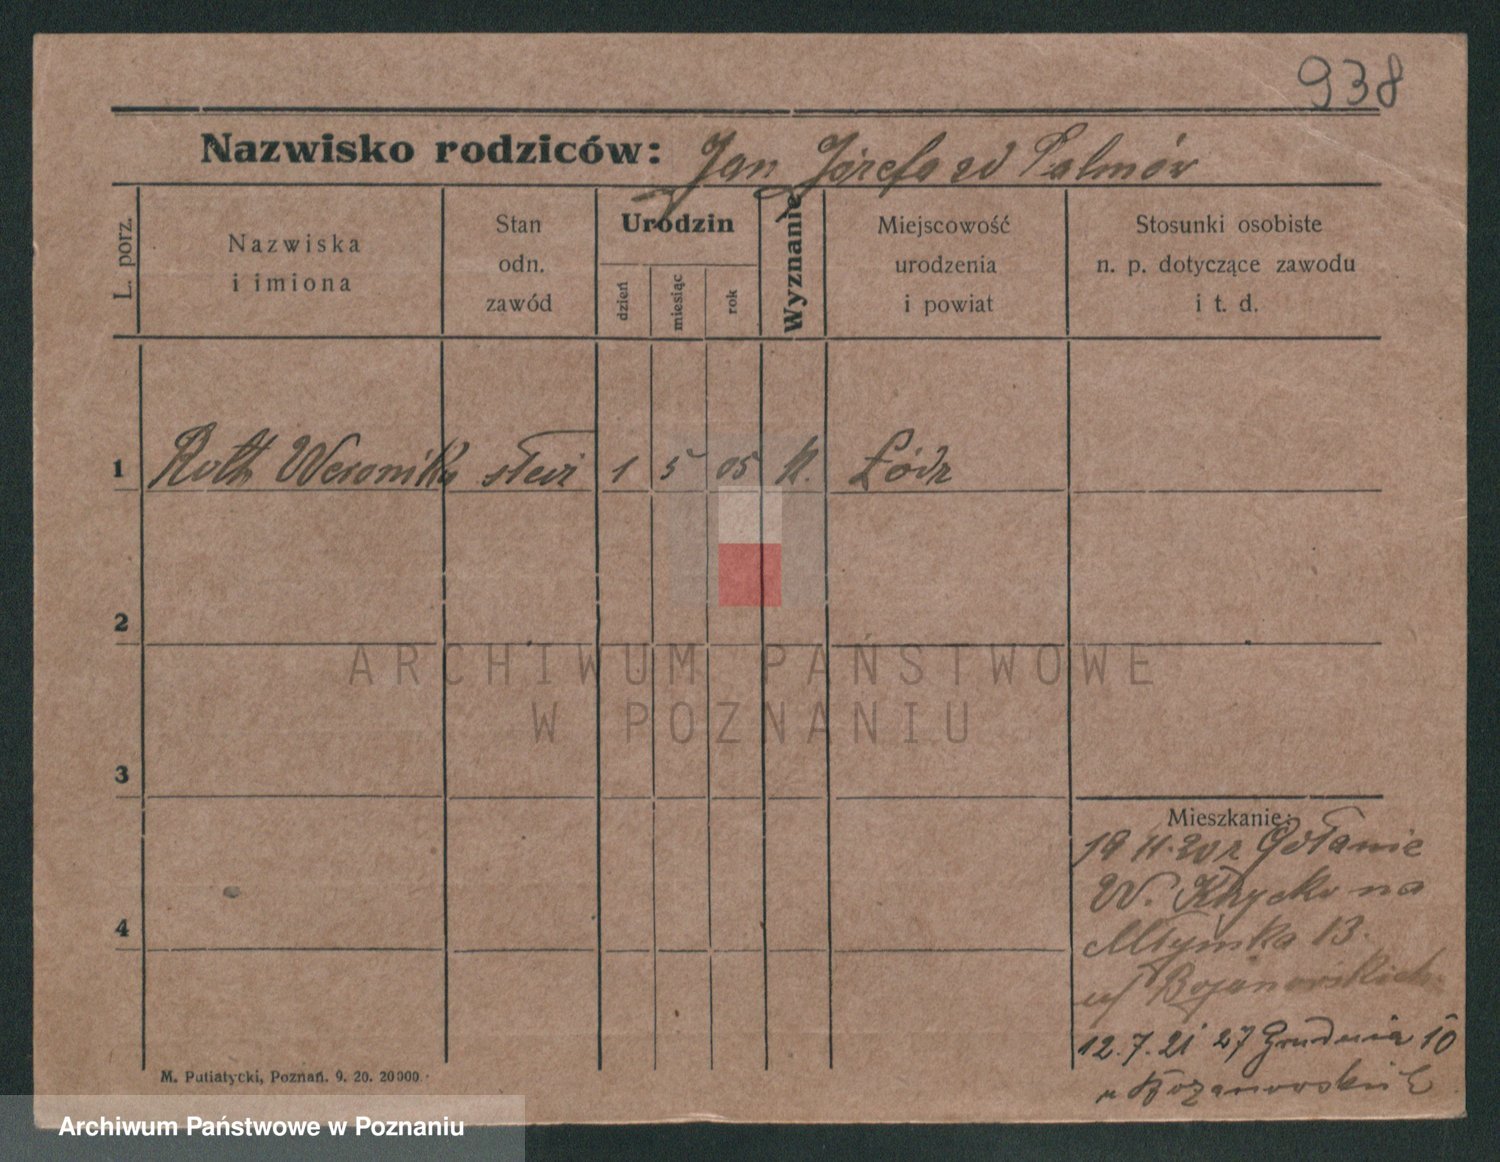 938
Nazwisko rodziców: Jan Józefa zd Palmów
L. porz.
Nazwiska
i imiona
Stan
odn.
zawód
Urodzin
dzień
miesiąc
rok
Wyznanie
Miejscowość
urodzenia
i powiat
Stosunki osobiste
n. p. dotyczące zawodu
i t. d.
1 Roth Weronika 1 5 05 k. Łódz
2
3
4
Mieszkanie:
19 11. 20 r
W. na
Młyńska 13.
u/ Bojanowskich
12.7.21 27 Grudnia 10
M. Putiatycki, Poznań. 9. 20. 20000.
ARCHIWUM PAŃSTWOWE
W POZNANIU
Archiwum Państwowe w Poznaniu